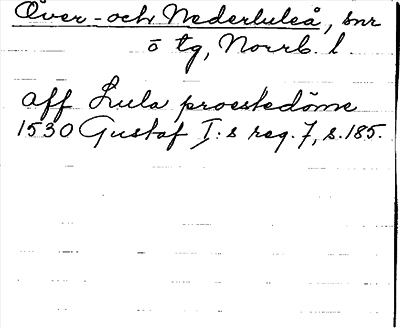 Över- och Nederluleå, snr
o tg, Norrb. l.
aff Lula proestedöme
1530 Gustaf I:s reg. 7, s. 185.